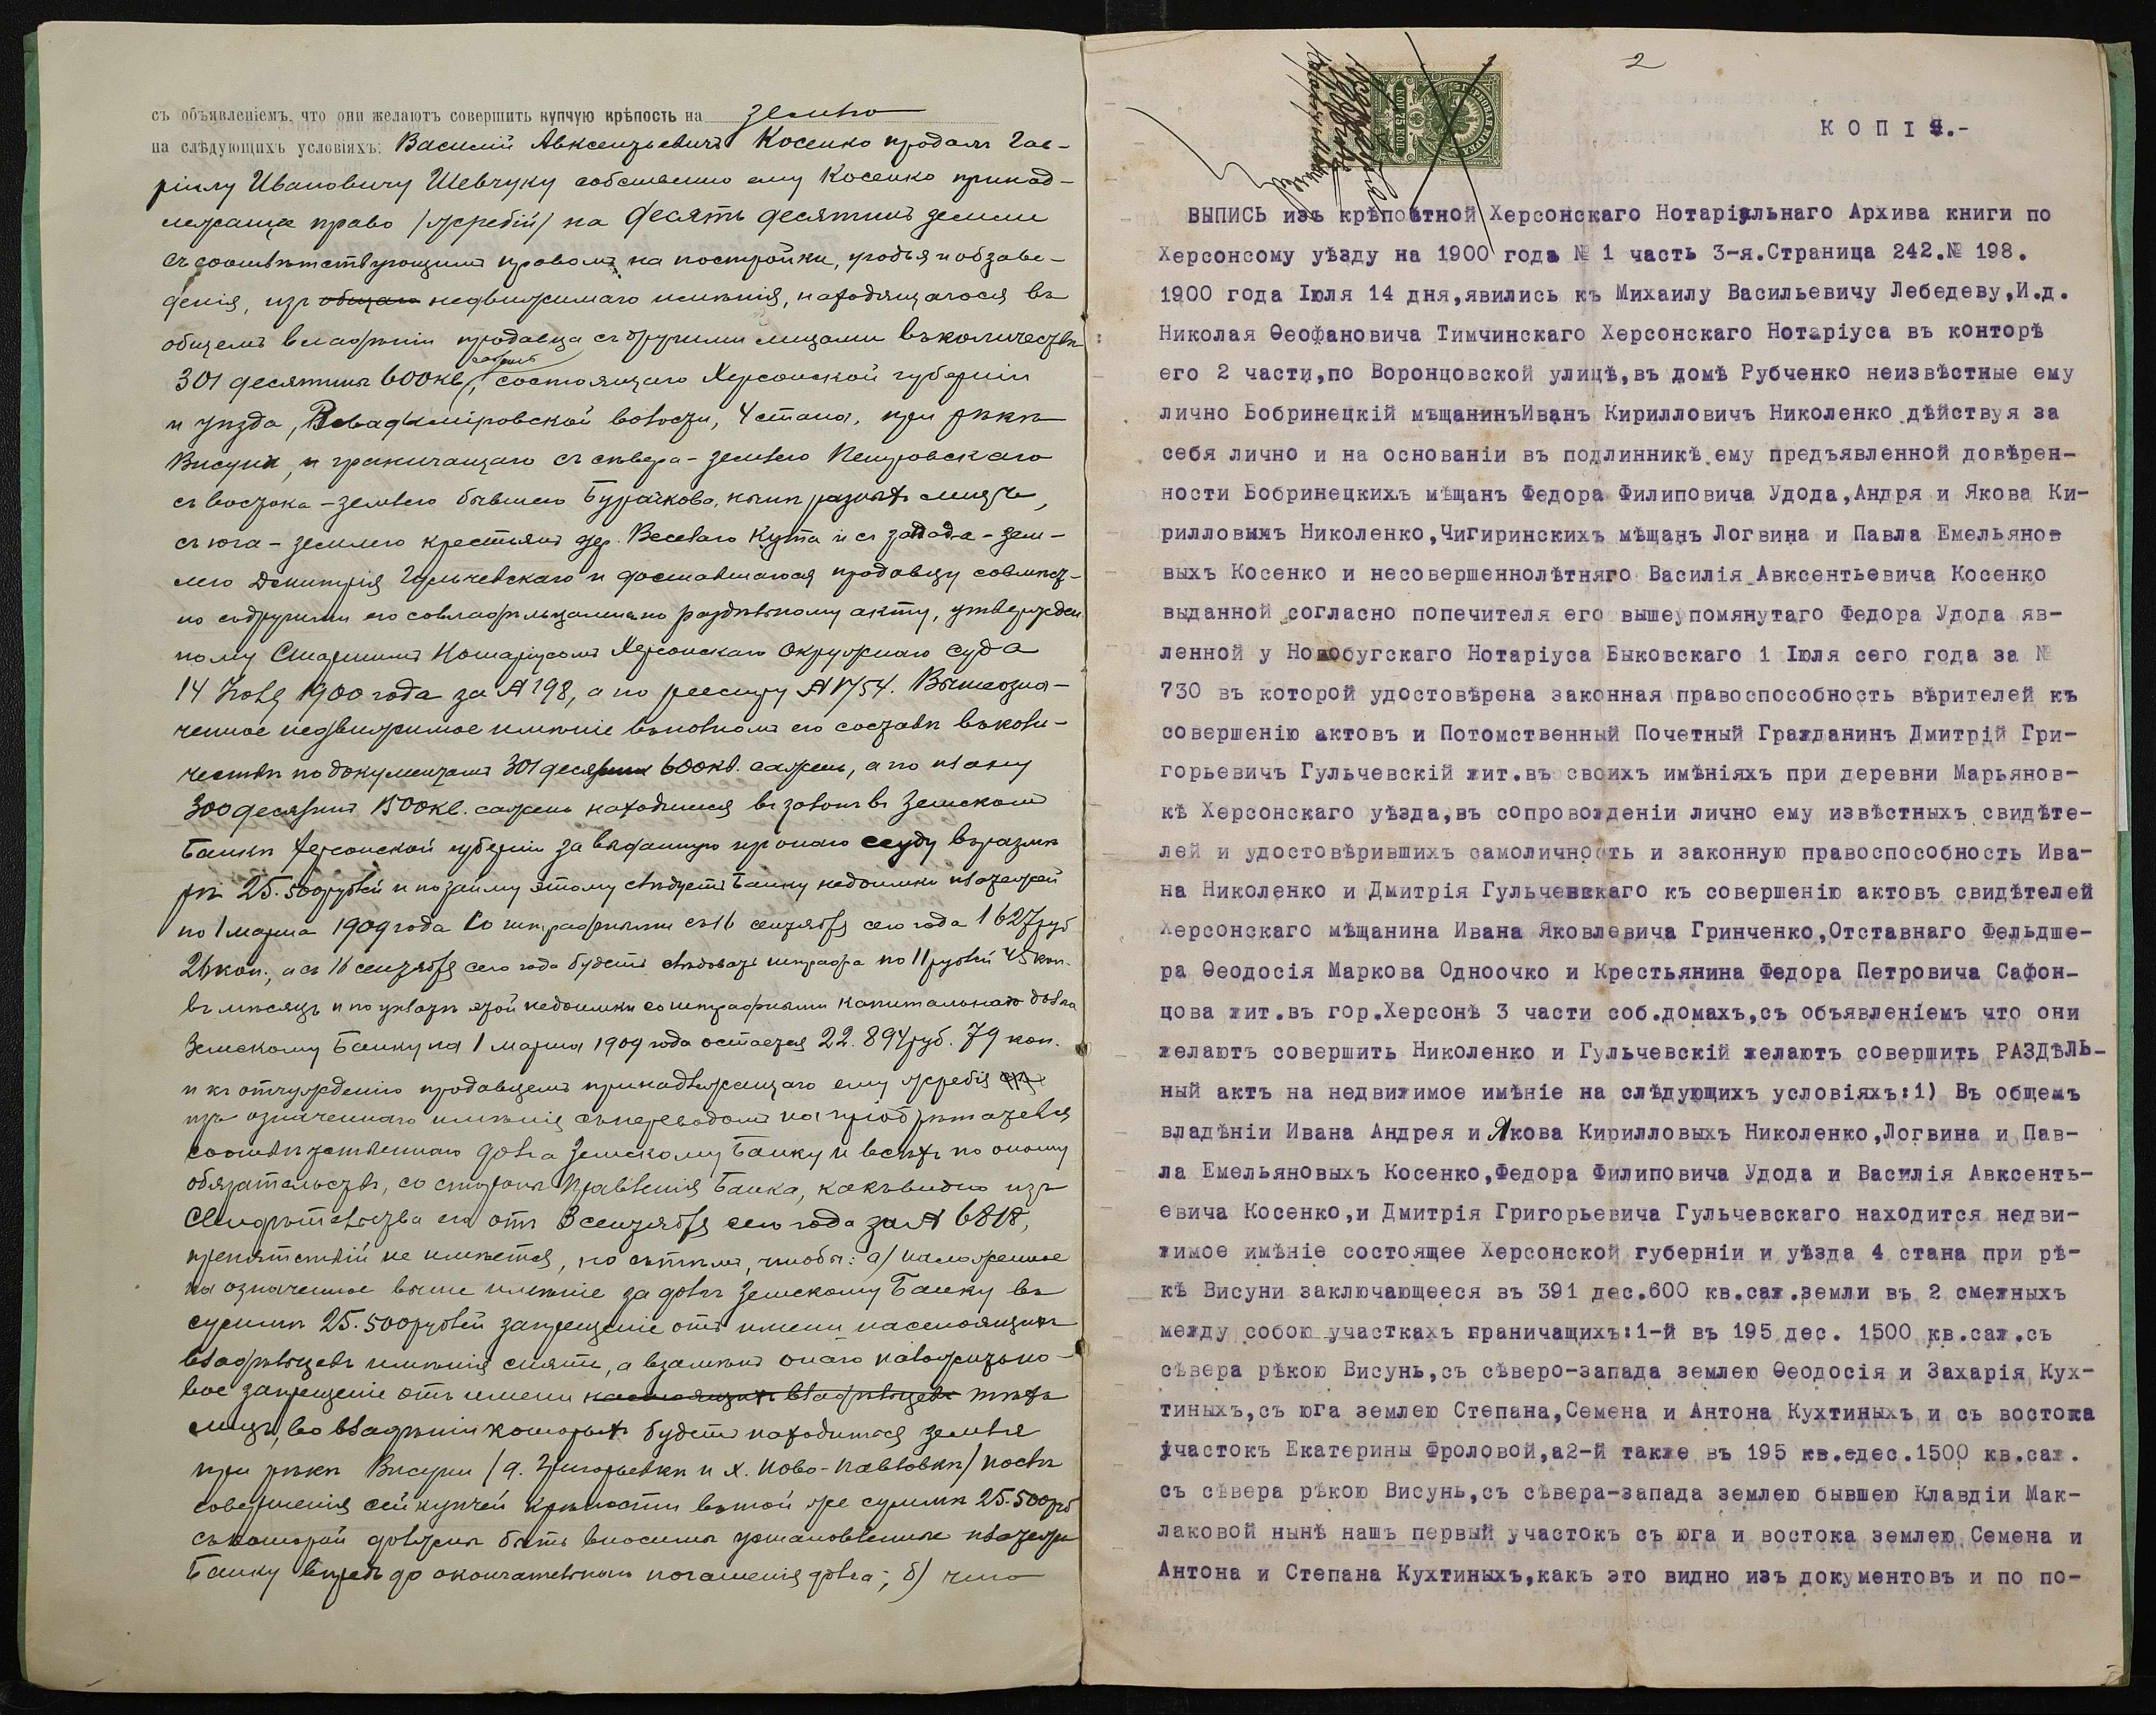 съ объявленіемъ, что они желаютъ совершить купчую крѣпость на землю
на слѣдующихъ условіяхъ: Василій Авксентьевичъ Косенко продалъ Гав-
ріилу Ивановичу Шевчуку собственно ему Косенко принад-
лежащее право /жребій/ на десять десятинъ земли
съ соотвѣтствующимъ правомъ на постройки, угодья и обзаве-
денія, изъ общаго недвижимаго имѣнія, находящагося въ
общемъ владѣніи продавца съ другими лицами въ количествѣ
301 десятины 600 кв. сажень, состоящаго Херсонской губерніи
и уѣзда, Владиміровской волости, 4 стана, при рѣкѣ
Висуни, и граничащаго съ сѣвера - землею Петровскаго
съ востока - землею бывшею Бурачкова, нынѣ разныхъ лицъ,
съ юга - землею крестьянъ дер. Веселаго Кута и съ запада - зем-
лею Дмитрія Гульчевскаго и доставшагося продавцу совмѣст-
но съ другими его совладѣльцами по раздѣльному акту, утвержден-
ному Старшимъ Нотаріусомъ Херсонскаго Окружнаго Суда
14 Іюля 1900 года за № 198, а по реестру № 1754. Вышеозна-
ченное недвижимое имѣніе въ полномъ его составѣ въ коли-
чествѣ по документамъ 301 десятина 600 кв. сажень, а по плану
300 десятинъ 1500 кв. сажень находится въ залогѣ въ Земскомъ
Банкѣ Херсонской губерніи за выданную изъ онаго ссуду въ размѣ-
рѣ 25.500 рублей и по займу этому слѣдуетъ Банку недоимки платежей
по 1 марта 1909 года со штрафными съ 16 сентября сего года 1627 руб
26 коп., а съ 16 сентября сего года будетъ слѣдовать штрафа по 11 рублей 45 коп.
въ мѣсяцъ и по уплатѣ этой недоимки со штрафными капитальнаго долга
Земскому Банку на 1 марта 1909 года остается 22.894 руб. 79 коп.
и къ отчужденію продавцемъ принадлежащаго ему жребія
изъ означеннаго имѣнія съ переводомъ на пріобрѣтателя
соотвѣтственнаго долга Земскому Банку и всѣхъ по оному
обязательствъ, со стороны Правленія Банка, какъ видно изъ
Свидѣтельства его отъ 3 сентября сего года за № 6818,
препятствій не имѣется, но съ тѣмъ, чтобы: а) наложенное
на означенное выше имѣніе за долгъ Земскому Банку въ
суммѣ 25.500 рублей запрещеніе отъ имени настоящихъ
владѣльцевъ имѣнія снять, а взамѣнъ онаго наложить но-
вое запрещеніе отъ имени настоящихъ владѣльцевъ тѣхъ
лицъ, во владѣніи которыхъ будетъ находиться земля
при рѣкѣ Висуни /д. Григорьевки и х. Ново-Павловки/ послѣ
совершенія сей купчей крѣпости въ той же суммѣ 25.500 руб
съ которой должны быть вносимы установленные платежи
Банку впредь до окончательнаго погашенія долга; б) что
2
КОПІЯ.-
ВЫПИСЬ изъ крѣпостной Херсонскаго Нотаріальнаго Архива книги по
Херсонсому уѣзду на 1900 годъ № 1 часть 3-я.Страница 242.№ 198.
1900 года Іюля 14 дня,явились къ Михаилу Васильевичу Лебедеву,И.д.
Николая Ѳеофановича Тимчинскаго Херсонскаго Нотаріуса въ конторѣ
его 2 части,по Воронцовской улицѣ,въ домѣ Рубченко неизвѣстные ему
лично Бобринецкій мѣщанинъИванъ Кирилловичъ Николенко дѣйствуя за
себя лично и на основаніи въ подлинникѣ ему предъявленной довѣрен-
ности Бобринецкихъ мѣщанъ Федора Филиповича Удода,Андря и Якова Ки-
рилловыхъ Николенко,Чигиринскихъ мѣщанъ Логвина и Павла Емельянов
выхъ Косенко и несовершеннолѣтняго Василія Авксентьевича Косенко
выданной согласно попечителя его вышеупомянутаго Федора Удода яв-
ленной у Новобугскаго Нотаріуса Быковскаго 1 Іюля сего года за №
730 въ которой удостовѣрена законная правоспособность вѣрителей къ
совершенію актовъ и Потомственный Почетный Гражданинъ Дмитрій Гри-
горьевичъ Гульчевскій жит.въ своихъ имѣніяхъ при деревни Марьянов-
кѣ Херсонскаго уѣзда,въ сопровожденіи лично ему извѣстныхъ свидѣте-
лей и удостовѣрившихъ самоличность и законную правоспособность Ива-
на Николенко и Дмитрія Гульчевскаго къ совершенію актовъ свидѣтелей
Херсонскаго мѣщанина Ивана Яковлевича Гринченко,Отставнаго Фельдше-
ра Ѳеодосія Маркова Одноочко и Крестьянина Федора Петровича Сафон-
цова жит.въ гор.Херсонѣ 3 части соб.домахъ,съ объявленіемъ что они
желаютъ совершить Николенко и Гульчевскій желаютъ совершить РАЗДѢЛЬ-
ный актъ на недвижимое имѣніе на слѣдующихъ условіяхъ:1) Въ общемъ
владѣніи Ивана Андрея и Якова Кирилловыхъ Николенко,Логвина и Пав-
ла Емельяновыхъ Косенко,Федора Филиповича Удода и Василія Авксенть-
евича Косенко,и Дмитрія Григорьевича Гульчевскаго находится недви-
жимое имѣніе состоящее Херсонской губерніи и уѣзда 4 стана при рѣ-
кѣ Висуни заключающееся въ 391 дес.600 кв.саж.земли въ 2 смежныхъ
между собою участкахъ граничащихъ:1-й въ 195 дес. 1500 кв.саж.съ
сѣвера рѣкою Висунь,съ сѣверо-запада землею Ѳеодосія и Захарія Кух-
тиныхъ,съ юга землею Степана,Семена и Антона Кухтиныхъ и съ востока
участокъ Екатерины Фроловой,а2-й также въ 195 кв.едес.1500 кв.саж.
съ сѣвера рѣкою Висунь,съ сѣвера-запада землею бывшею Клавдіи Мак-
лаковой нынѣ нашъ первый участокъ съ юга и востока землею Семена и
Антона и Степана Кухтиныхъ,какъ это видно изъ документовъ и по по-